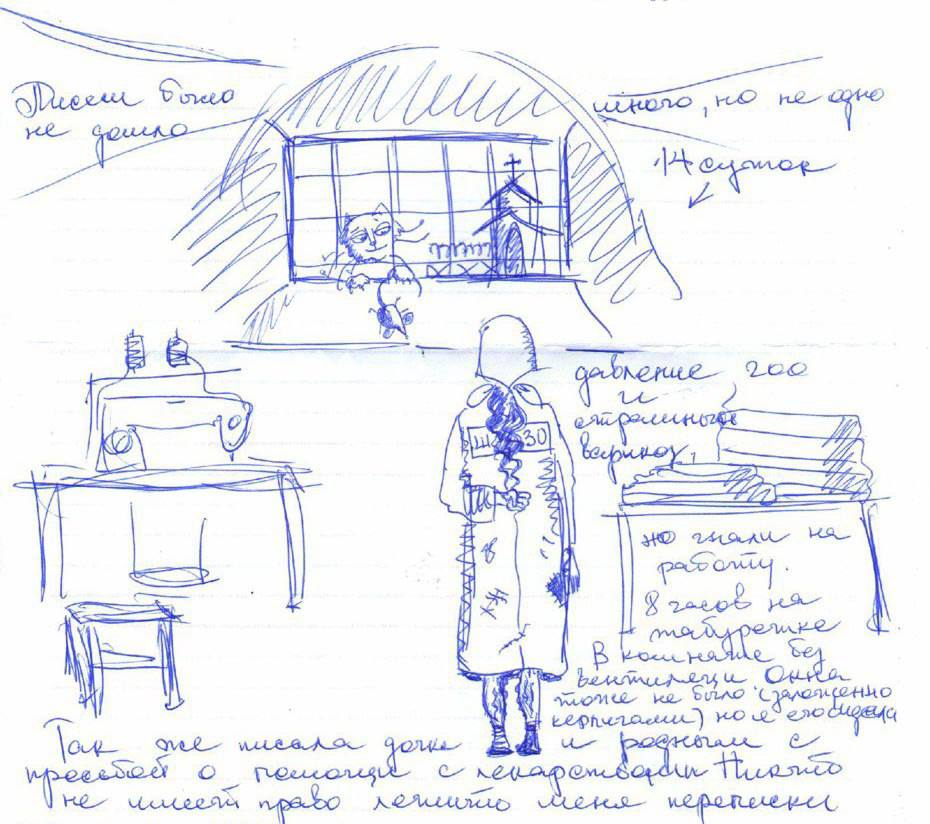 Писем было много, но не одно
не дошло
14 суток
давление 200
и
страшный
варикоз,
Ш ЗО
но гнали на
работу.
8 часов на
табуретке
В комнате без
вентиляци Окна
тоже не было (заложенно
керпичами) но я его видела
Так же писала дочке и родным с
просьбой о помощи с лекарствами Никто
не имеет право лишить меня переписки